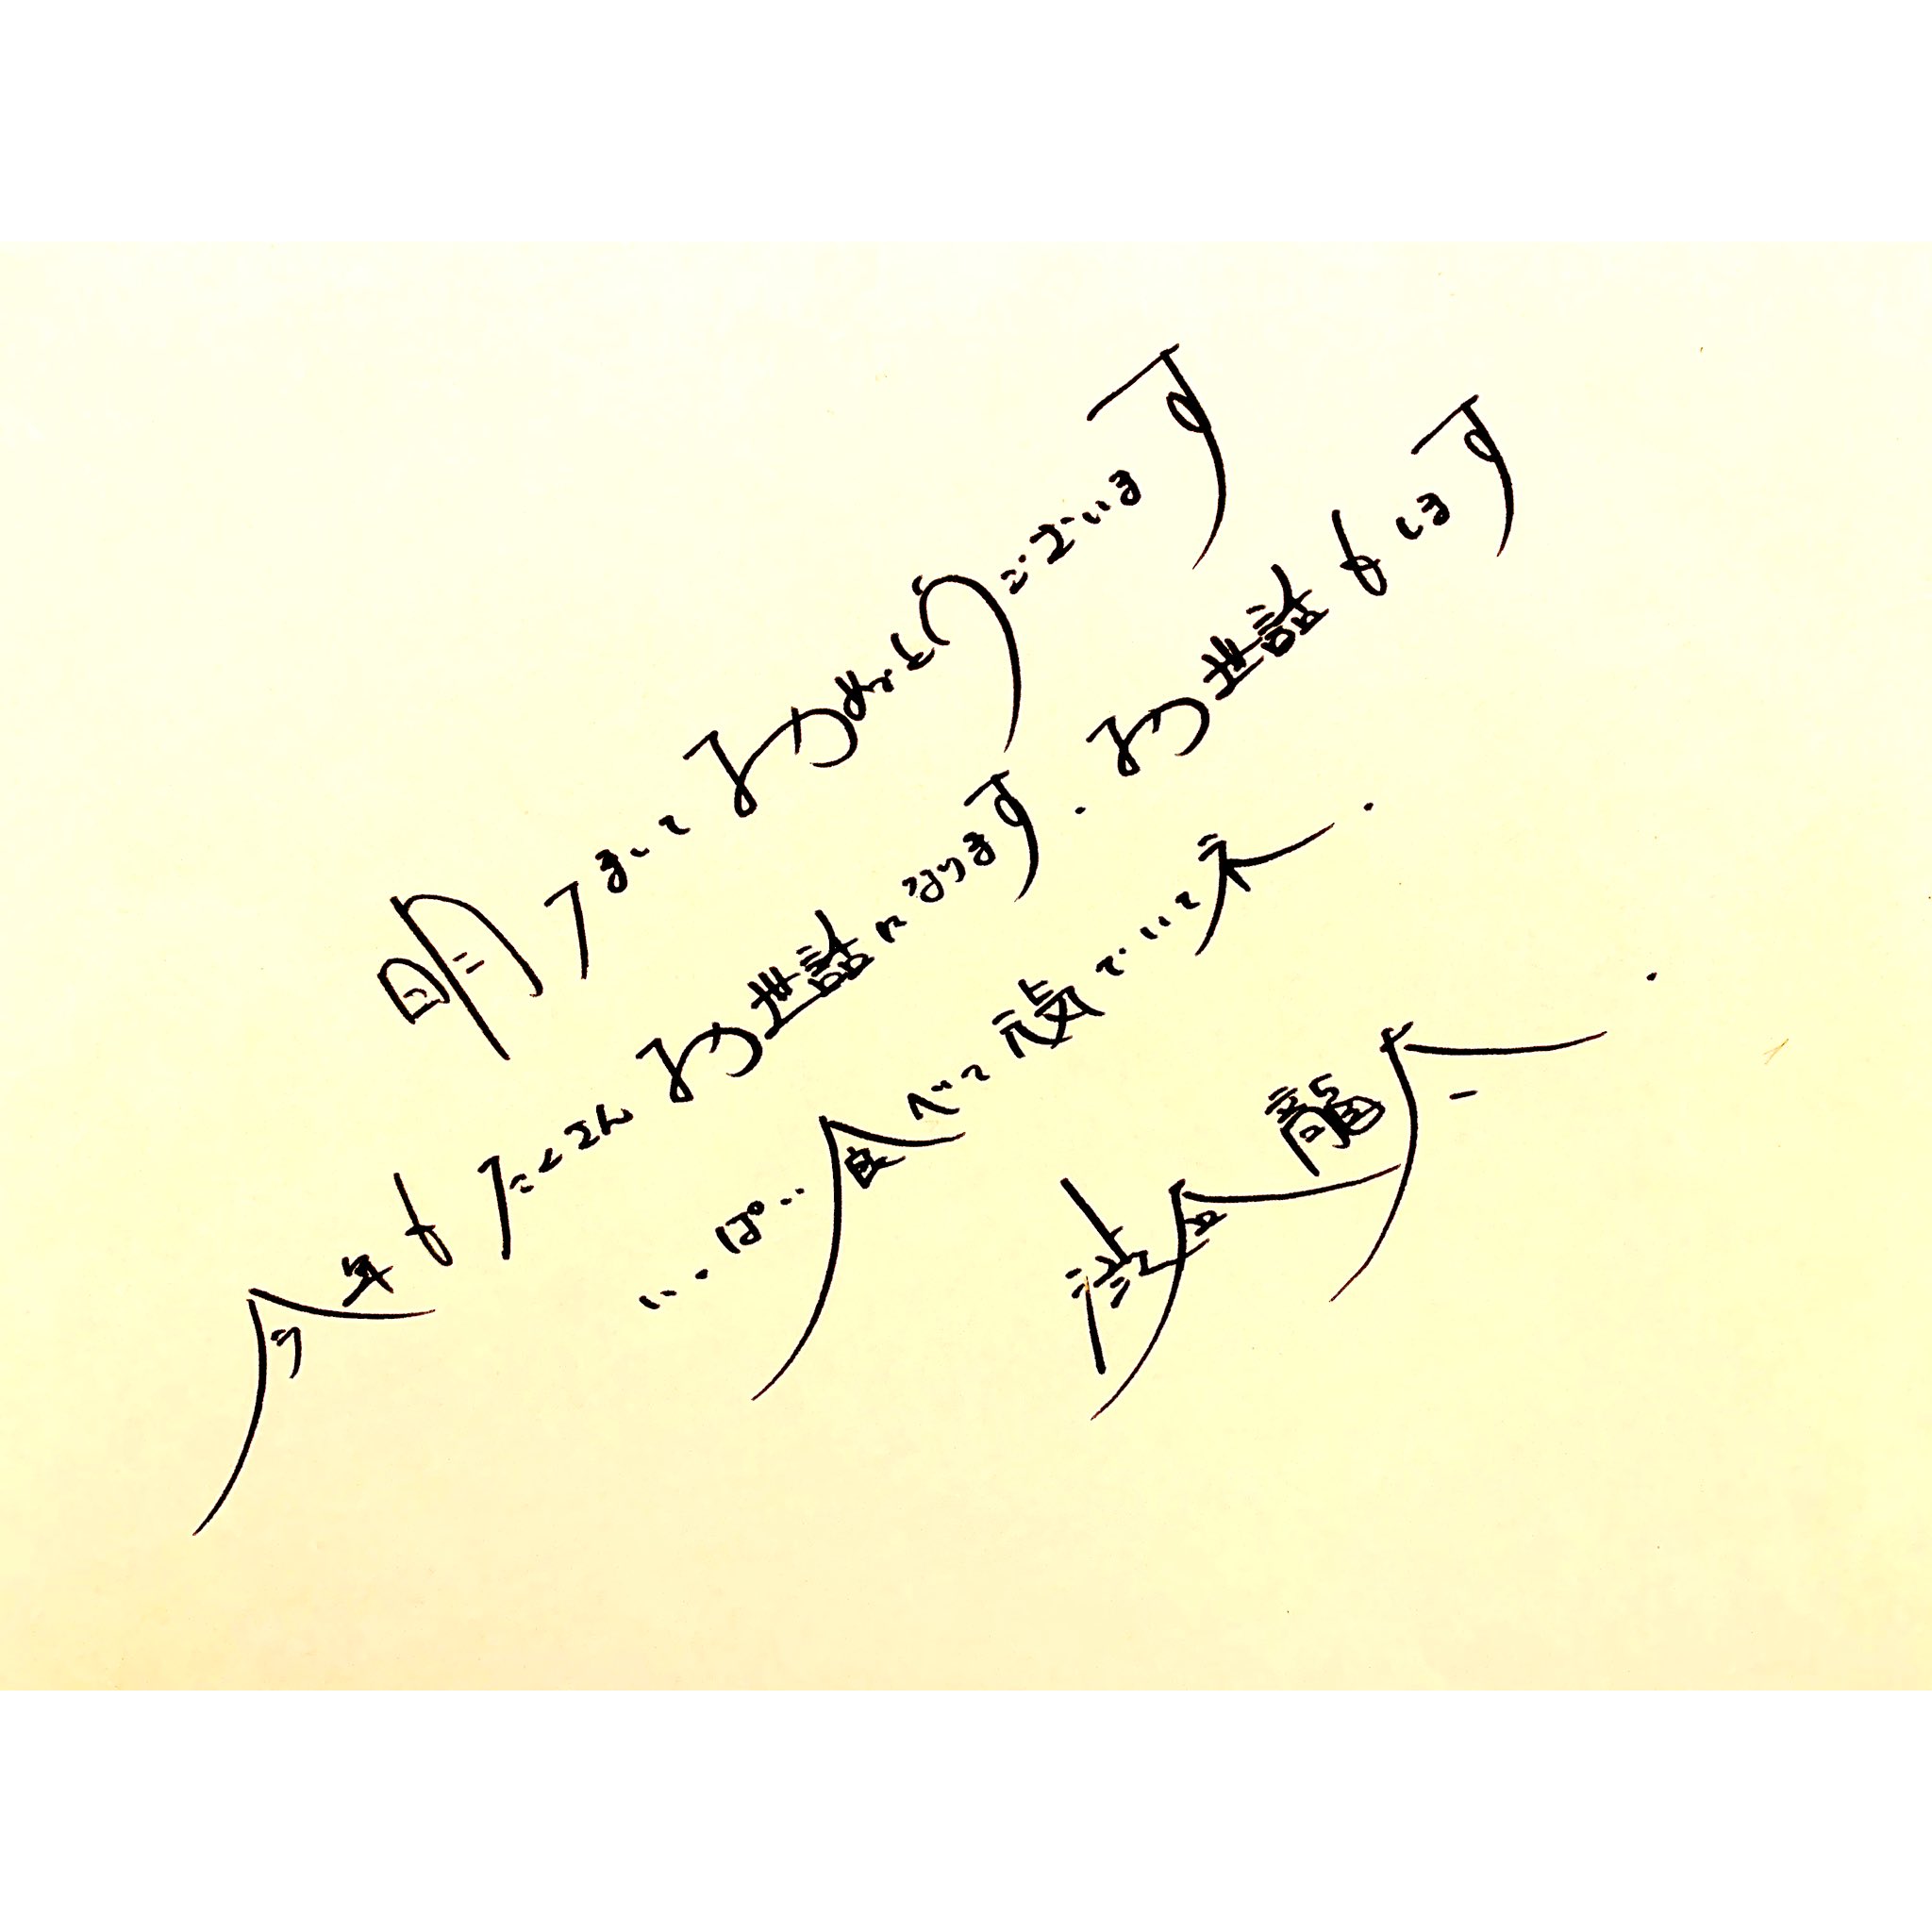 明けましておめでとうございます
今年もたくさんお世話になります.お世話もします
いっぱい食べて元気でいてネ.
渋谷龍太.